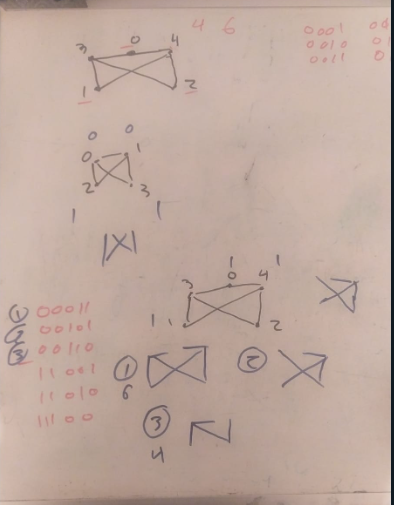 4 6
0 0 0 1
0 0 1 0
0 0 1 1
3 0 4
1 2
0 0
0 1
2 3
1 1
1 1
3 0 4
1 1 2
① 0 0 0 1 1
② 0 0 1 0 1
③ 0 0 1 1 0
1 1 0 0 1
1 1 0 1 0
1 1 1 0 0
① ②
6
③
4